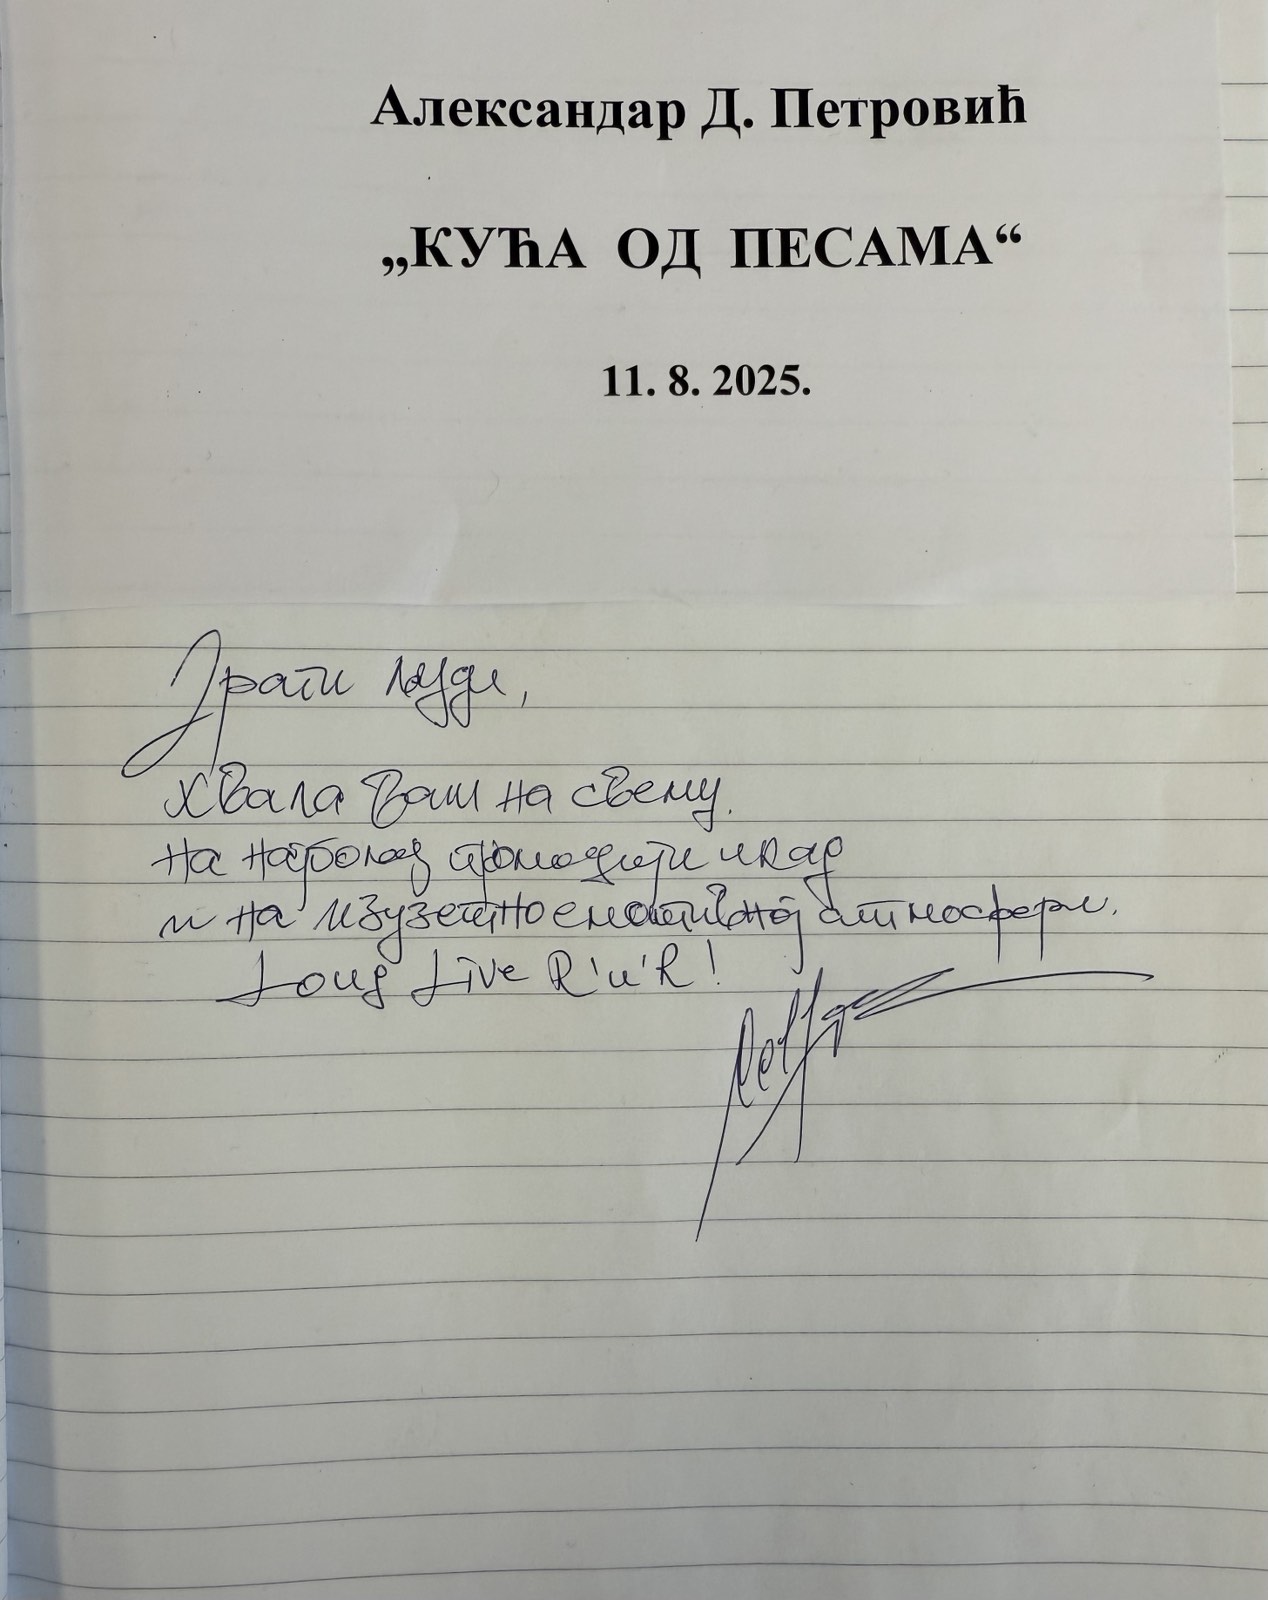 Александар Д. Петровић
„КУЋА ОД ПЕСАМА“
11. 8. 2025.
Драги људи,
хвала Вам на свему.
На најбољој промоцији икад
и на изузетно емотивној атмосфери.
Long Live R'n'R!